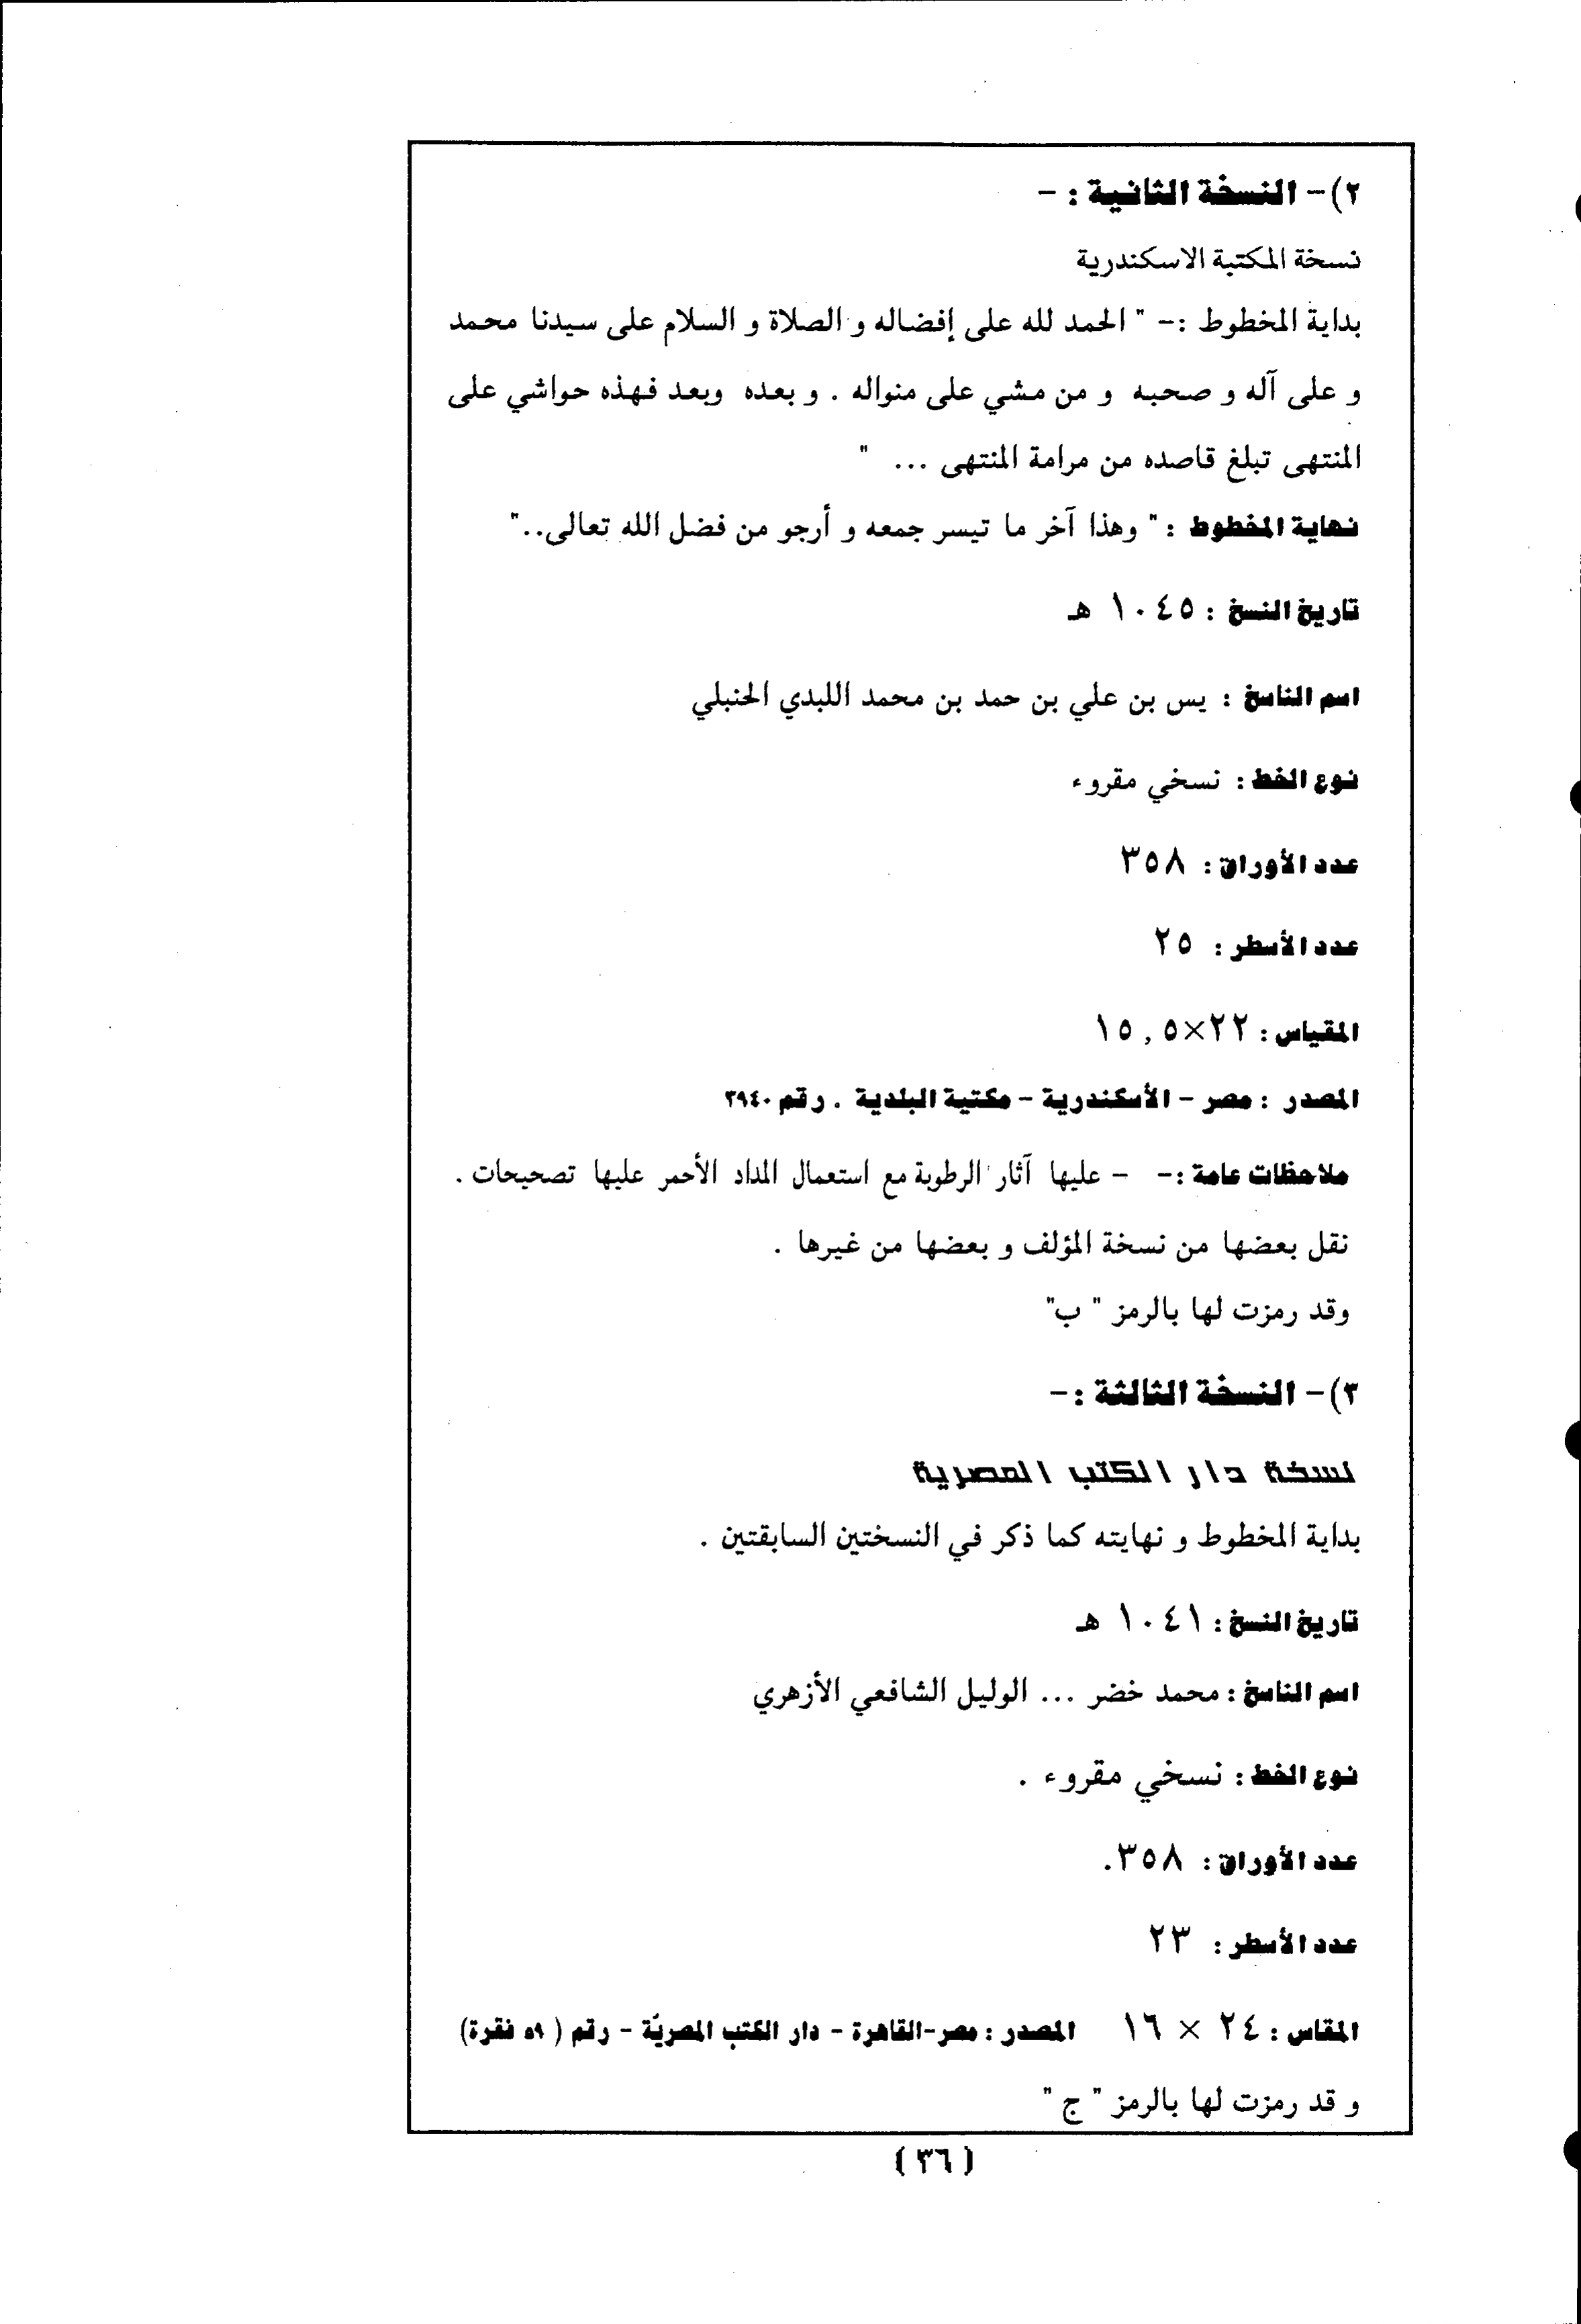 ٢)- النسخة الثانية : -
نسخة المكتبة الاسكندرية
بداية المخطوط :- " الحمد لله على إفضاله و الصلاة و السلام على سيدنا محمد
و على آله و صحبه و من مشي على منواله . و بعده وبعد فهذه حواشي على
المنتهى تبلغ قاصده من مرامة المنتهى ... "
نهاية المخطوط : " وهذا آخر ما تيسر جمعه و أرجو من فضل الله تعالى.."
تاريخ النسخ : ١٠٤٥ هـ
اسم الناسخ : يس بن علي بن حمد بن محمد اللبدي الحنبلي
نوع الخط : نسخي مقروء
عدد الأوراق : ٣٥٨
عدد الأسطر : ٢٥
المقياس : ٢٢×١٥,٥
المصدر : مصر - الأسكندرية - مكتبة البلدية . رقم ٣٩٤٠
ملاحظات عامة :- - عليها آثار الرطوبة مع استعمال المداد الأحمر عليها تصحيحات .
نقل بعضها من نسخة المؤلف و بعضها من غيرها .
وقد رمزت لها بالرمز " ب"
٣)- النسخة الثالثة :-
نسخة دار الكتب المصرية
بداية المخطوط و نهايته كما ذكر في النسختين السابقتين .
تاريخ النسخ : ١٠٤١ هـ
اسم الناسخ : محمد خضر ... الوليل الشافعي الأزهري
نوع الخط : نسخي مقروء .
عدد الأوراق : ٣٥٨.
عدد الأسطر : ٢٣
المقاس : ٢٤ × ١٦ المصدر : مصر-القاهرة - دار الكتب المصريّة - رقم ( ٥٩ فقرة)
و قد رمزت لها بالرمز " ج "
( ٣٦ )